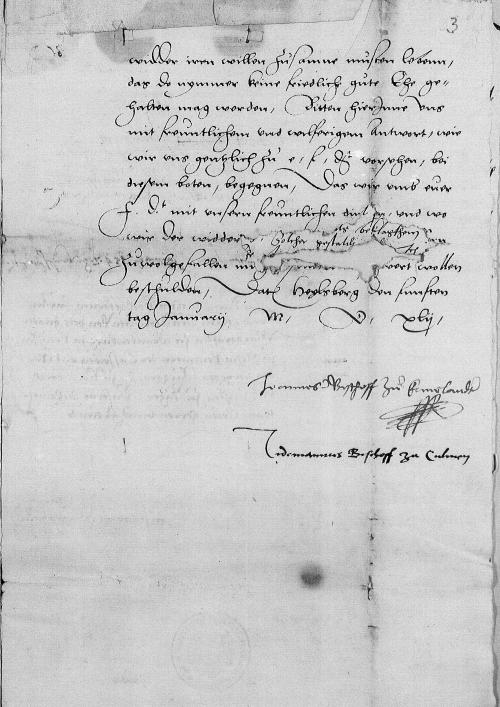 3
widder iren willen zusamne musten lebenn,
das do nymmer keine friedlich gute Ehe ge-
halten mag werden, Bitten hierInne uns
mit freuntlichem und wilferigem antwort, wie
wir uns gentzlich zu e. f. d. vorsehen, bei
diesem boten, begegnen, Das wir umb euer
f. d. mit unsern freuntlichen und wo
wir der widder solcher gestalt
zu wolgefallen wort wollen
beschulden, Dat Heylsberg den funften
tag Januarij M. D. xlij,
Joannes Bischoff zu Ermelandt
Tidemannus Bischoff zu Culmen